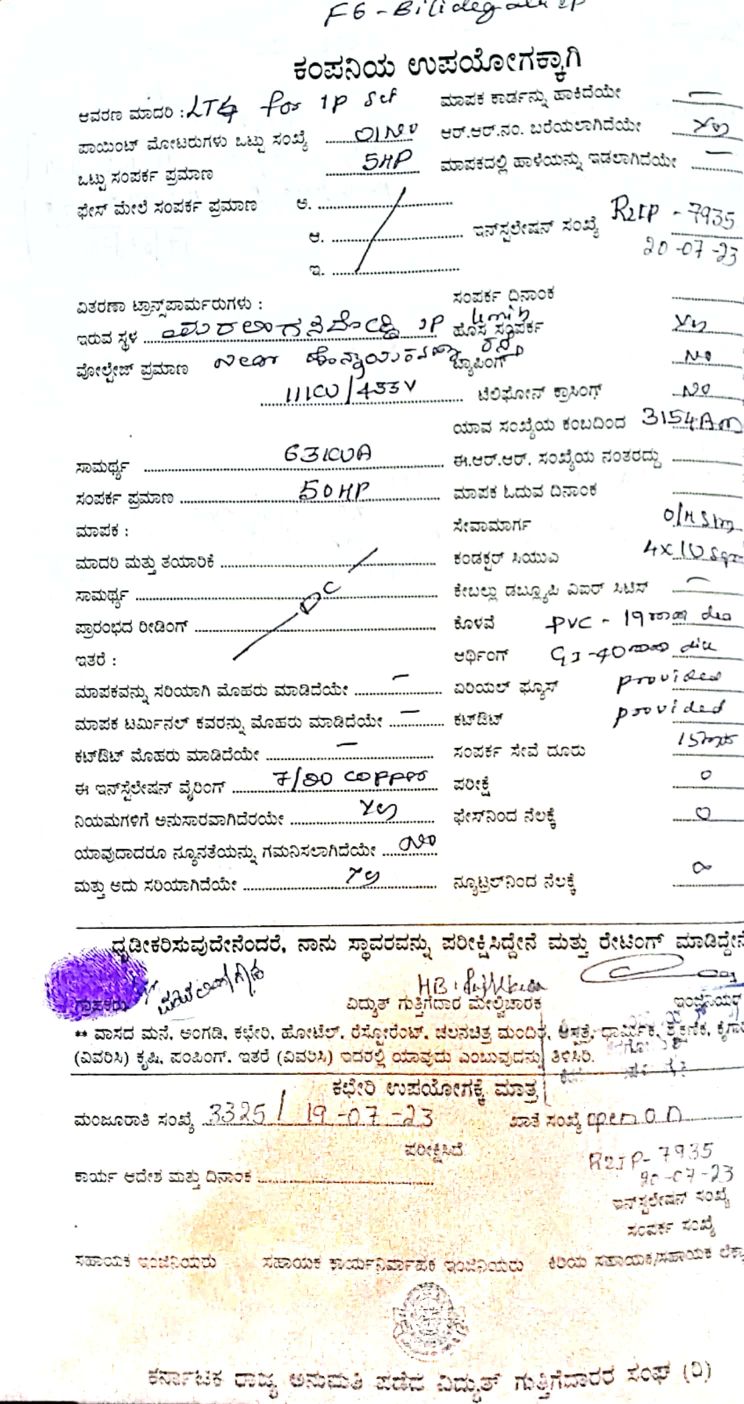 F6 - Bilidegalu IP
ಕಂಪನಿಯ ಉಪಯೋಗಕ್ಕಾಗಿ
ಆವರಣ ಮಾದರಿ : LT4 for IP Set ಮಾಪಕ ಕಾರ್ಡನ್ನು ಹಾಕಿದೆಯೇ —
ಪಾಯಿಂಟ್ ಮೋಟರುಗಳು ಒಟ್ಟು ಸಂಖ್ಯೆ 01No ಆರ್.ಆರ್.ನಂ. ಬರೆಯಲಾಗಿದೆಯೇ Yes
ಒಟ್ಟು ಸಂಪರ್ಕ ಪ್ರಮಾಣ 5HP ಮಾಪಕದಲ್ಲಿ ಹಾಳೆಯನ್ನು ಇಡಲಾಗಿದೆಯೇ —
ಫೇಸ್ ಮೇಲೆ ಸಂಪರ್ಕ ಪ್ರಮಾಣ ಅ.
ಆ. ಇನ್‌ಸ್ಟಲೇಷನ್ ಸಂಖ್ಯೆ R2IP - 7935
20-07-23
ಇ.
ವಿತರಣಾ ಟ್ರಾನ್ಸ್‌ಪಾರ್ಮರುಗಳು : ಸಂಪರ್ಕ ದಿನಾಂಕ
ಇರುವ ಸ್ಥಳ IP limit ಹೊಸ ಸಂಪರ್ಕ Yes
ವೋಲ್ಟೇಜ್ ಪ್ರಮಾಣ ಟ್ಯಾಪಿಂಗ್ No
11KV/433V ಟೆಲಿಫೋನ್ ಕ್ರಾಸಿಂಗ್ No
ಯಾವ ಸಂಖ್ಯೆಯ ಕಂಬದಿಂದ 3154Am
ಸಾಮರ್ಥ್ಯ 63KVA ಈ.ಆರ್.ಆರ್. ಸಂಖ್ಯೆಯ ನಂತರದ್ದು
ಸಂಪರ್ಕ ಪ್ರಮಾಣ 50HP ಮಾಪಕ ಓದುವ ದಿನಾಂಕ
ಮಾಪಕ : ಸೇವಾಮಾರ್ಗ
ಮಾದರಿ ಮತ್ತು ತಯಾರಿಕೆ ಕಂಡಕ್ಟರ್ ಸಿಯುಎ 4x10 Sqm
ಸಾಮರ್ಥ್ಯ DC ಕೇಬಲ್ಲು ಡಬ್ಲ್ಯೂಪಿ ವಿಐಆರ್ ಸಿಟಿಸ್ —
ಪ್ರಾರಂಭದ ರೀಡಿಂಗ್ ಕೊಳವೆ PVC - 19mm dia
ಇತರೆ : ಆರ್ಥಿಂಗ್ GI-40mm dia
ಮಾಪಕವನ್ನು ಸರಿಯಾಗಿ ಮೊಹರು ಮಾಡಿದೆಯೇ — ಏರಿಯಲ್ ಫ್ಯೂಸ್ provided
ಮಾಪಕ ಟರ್ಮಿನಲ್ ಕವರನ್ನು ಮೊಹರು ಮಾಡಿದೆಯೇ — ಕಟ್‌ಔಟ್ provided
ಕಟ್‌ಔಟ್ ಮೊಹರು ಮಾಡಿದೆಯೇ — ಸಂಪರ್ಕ ಸೇವೆ ದೂರು 15mtr
ಈ ಇನ್‌ಸ್ಟೆಲೇಷನ್ ವೈರಿಂಗ್ 7/20 copper ಪರೀಕ್ಷೆ 0
ನಿಯಮಗಳಿಗೆ ಅನುಸಾರವಾಗಿದೆರಯೇ Yes ಫೇಸ್‌ನಿಂದ ನೆಲಕ್ಕೆ 0
ಯಾವುದಾದರೂ ನ್ಯೂನತೆಯನ್ನು ಗಮನಿಸಲಾಗಿದೆಯೇ No
ಮತ್ತು ಅದು ಸರಿಯಾಗಿದೆಯೇ Yes ನ್ಯೂಟ್ರಲ್‌ನಿಂದ ನೆಲಕ್ಕೆ
ಧೃಡೀಕರಿಸುವುದೇನೆಂದರೆ, ನಾನು ಸ್ಥಾವರವನ್ನು ಪರೀಕ್ಷಿಸಿದ್ದೇನೆ ಮತ್ತು ರೇಟಿಂಗ್ ಮಾಡಿದ್ದೇನೆ
ಗ್ರಾಹಕರು ವಿದ್ಯುತ್ ಗುತ್ತಿಗೆದಾರ ಮೇಲ್ವಿಚಾರಕ ಇಂಜಿನಿಯರ್
** ವಾಸದ ಮನೆ, ಅಂಗಡಿ, ಕಛೇರಿ, ಹೋಟೆಲ್, ರೆಸ್ಟೋರೆಂಟ್, ಚಲನಚಿತ್ರ ಮಂದಿರ, ಆಸ್ಪತ್ರೆ, ಧಾರ್ಮಿಕ, ಶೈಕ್ಷಣಿಕ, ಕೈಗಾ
(ವಿವರಿಸಿ) ಕೃಷಿ, ಪಂಪಿಂಗ್, ಇತರೆ (ವಿವರಿಸಿ) ಇದರಲ್ಲಿ ಯಾವುದು ಎಂಬುವುದನ್ನು ತಿಳಿಸಿರಿ.
ಕಛೇರಿ ಉಪಯೋಗಕ್ಕೆ ಮಾತ್ರ
ಮಂಜೂರಾತಿ ಸಂಖ್ಯೆ 3325/ 19-07-23 ಖಾತೆ ಸಂಖ್ಯೆ
ಪರೀಕ್ಷಿಸಿದೆ R2IP-7935
ಕಾರ್ಯ ಆದೇಶ ಮತ್ತು ದಿನಾಂಕ 20-07-23
ಇನ್‌ಸ್ಟಲೇಷನ್ ಸಂಖ್ಯೆ
ಸಂಪರ್ಕ ಸಂಖ್ಯೆ
ಸಹಾಯಕ ಇಂಜಿನಿಯರು ಸಹಾಯಕ ಕಾರ್ಯನಿರ್ವಾಹಕ ಇಂಜಿನಿಯರು ಕಿರಿಯ ಸಹಾಯಕ/ಸಹಾಯಕ ಲೆಕ್ಕಾ
ಕರ್ನಾಟಕ ರಾಜ್ಯ ಅನುಮತಿ ಪಡೆದ ವಿದ್ಯುತ್ ಗುತ್ತಿಗೆದಾರರ ಸಂಘ (ರಿ)